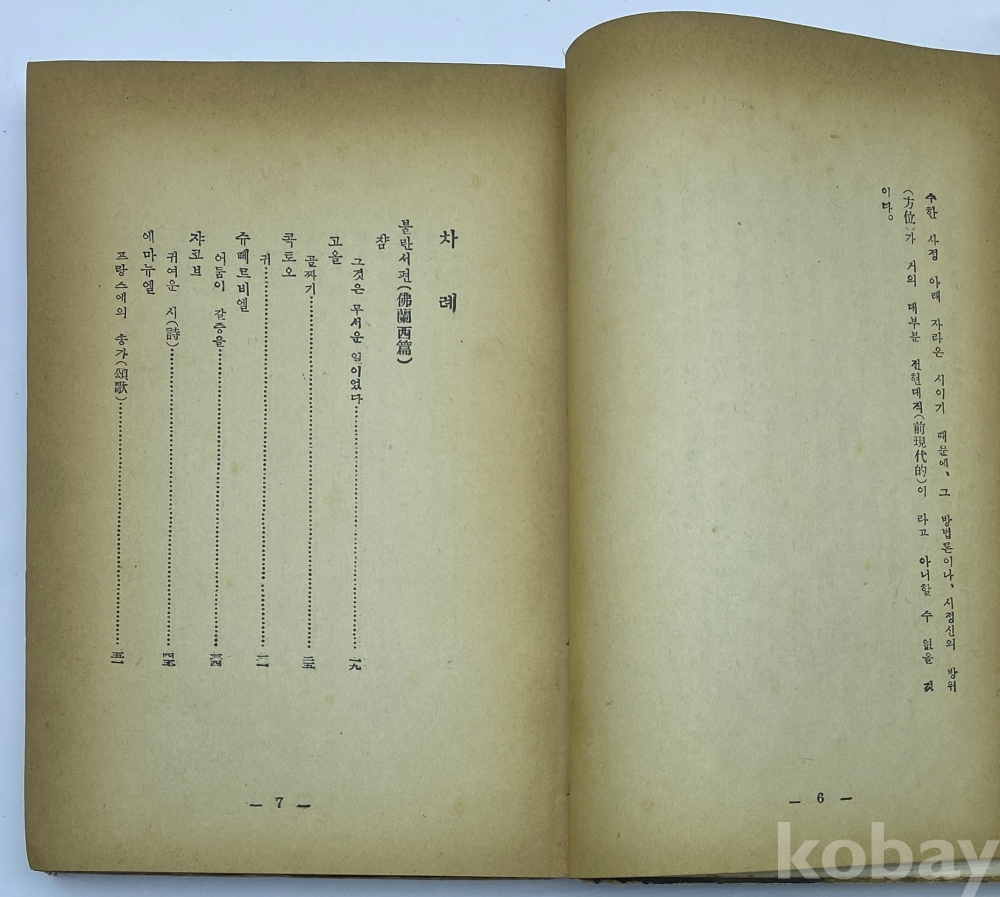 수한 사정 아래 자라온 시이기 때문에, 그 방법론이나, 시정신의 방위
(方位)가 거의 대부분 전현대적(前現代的)이 라고 아니할 수 없을 것
이다。
— 6 —
차 례
불란서편(佛蘭西篇)
쟘
그것은 무서운 일이었다……一九
고올
골짜기……二五
콕토오
귀……
슈페르비엘
어둠이 갈증을……三四
쟈코브
귀여운 시(詩)……四五
에마뉴엘
프랑스에의 송가(頌歌)……五一
— 7 —
kobay